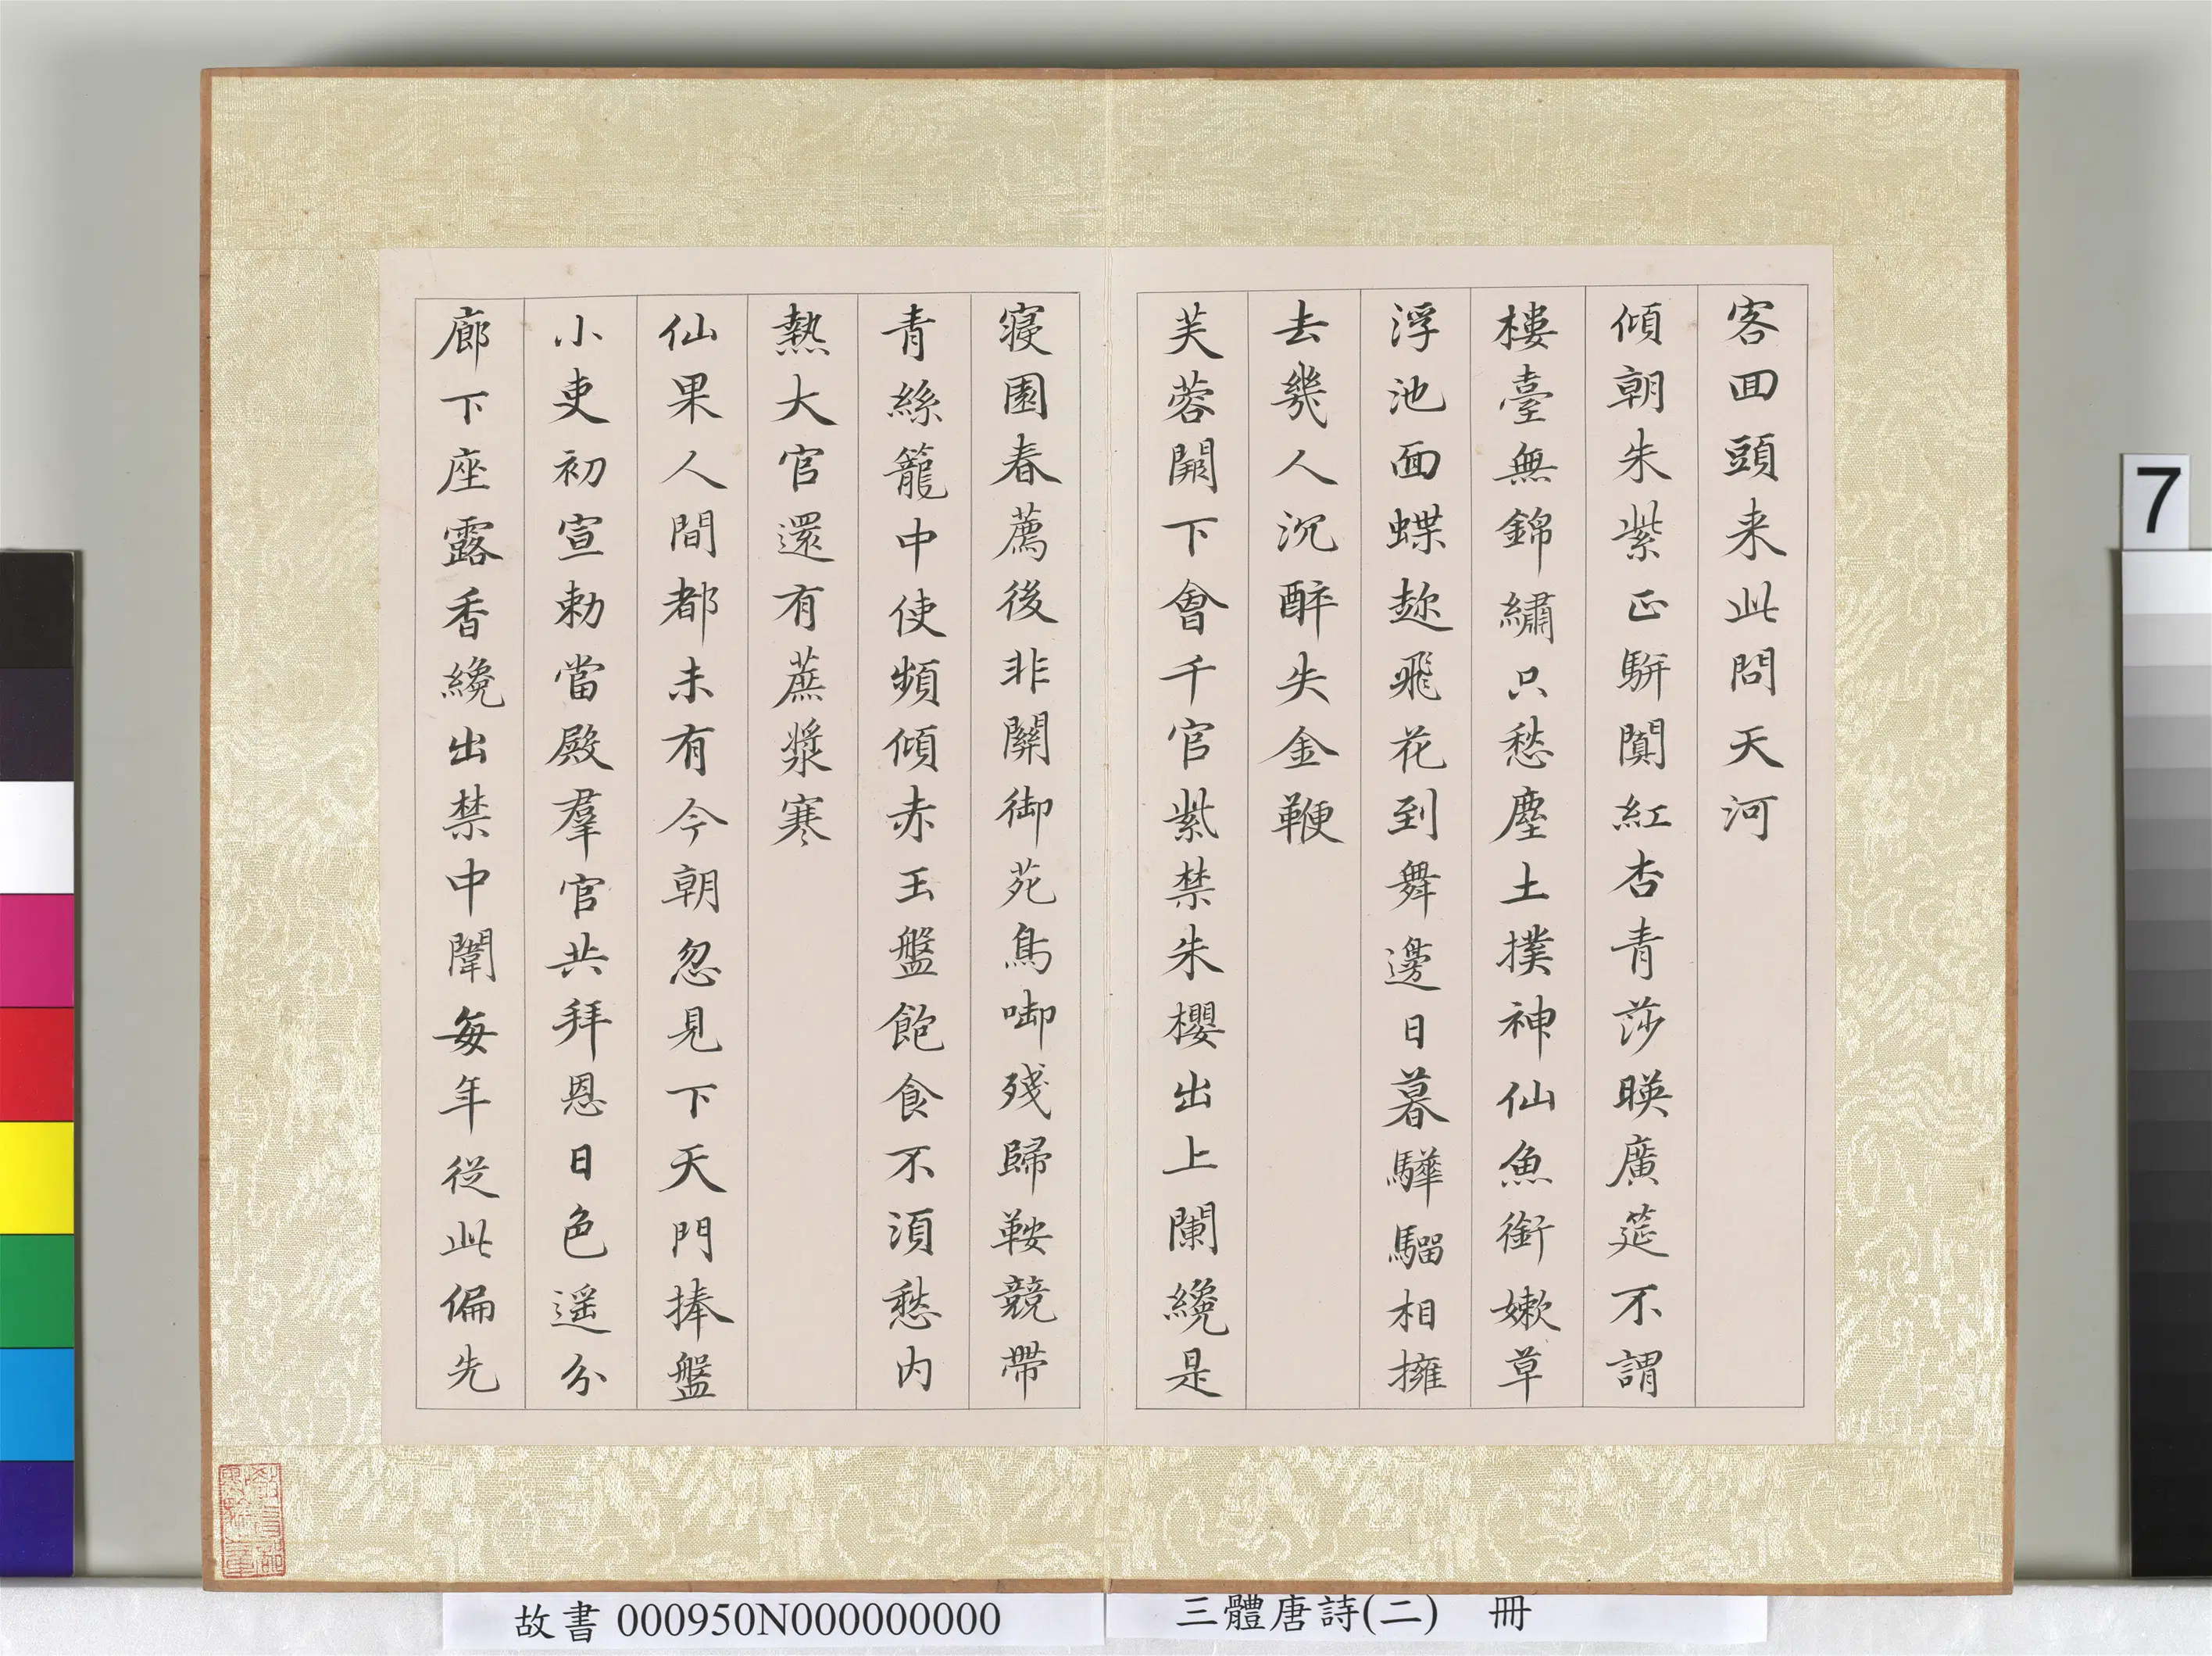 客回頭来此問天河
傾朝朱紫正駢闐紅杏青莎暎廣筵不謂
樓臺無錦繡只愁塵土撲神仙魚銜嫩草
浮池面蝶趂飛花到舞邊日暮驊騮相擁
去幾人沉醉失金鞭
芙蓉闕下會千官紫禁朱櫻出上闌纔是
寢園春薦後非關御苑鳥啣殘歸鞍競帶
青絲籠中使頻傾赤玉盤飽食不須愁内
熱大官還有蔗漿寒
仙果人間都未有今朝忽見下天門捧盤
小吏初宣勅當殿羣官共拜恩日色遥分
廊下座露香纔出禁中闈每年從此偏先
故書 000950N000000000
三體唐詩(二) 冊
7